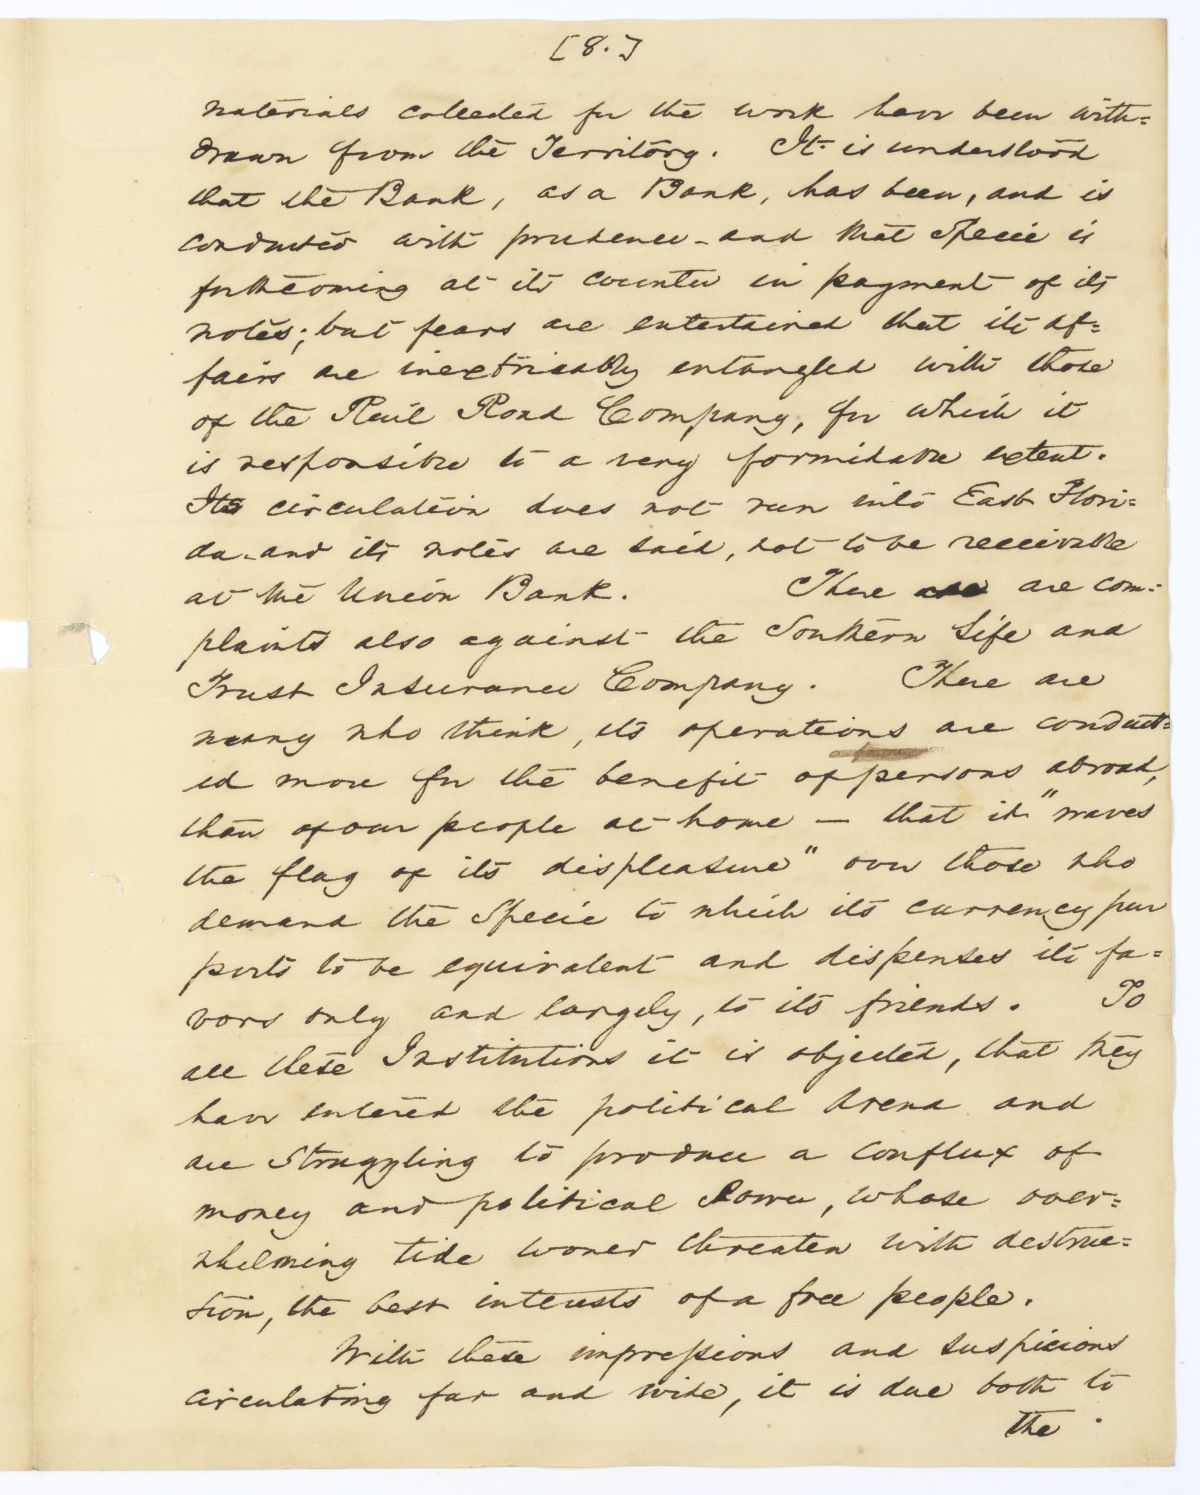 [8.]
materials collected for the work have been with=
drawn from the Territory. It is understood
that the Bank, as a Bank, has been, and is
conducted with prudence - and that Specie is
forthcoming at its counter in payment of its
notes; but fears are entertained that its af=
fairs are inextricably entangled with those
of the Rail Road Company, for which it
is responsible to a very formidable extent.
Its circulation does not run into East Flori=
da - and its notes are said, not to be receivable
at the Union Bank. There are com=
plaints also against the Southern Life and
Trust Insurance Company. There are
many who think, its operations are conduct=
ed more for the benefit of persons abroad,
than of our people at home — that it "waves
the flag of its displeasure" over those who
demand the Specie to which its currency pur
ports to be equivalent and dispenses its fa=
vors only and largely, to its friends. To
all these Institutions it is objected, that they
have entered the political Arena and
are Struggling to produce a conflux of
money and political Power, whose over=
whelming tide would threaten with destruc=
tion, the best interests of a free people.
With these impressions and suspicions
circulating far and wide, it is due both to
the